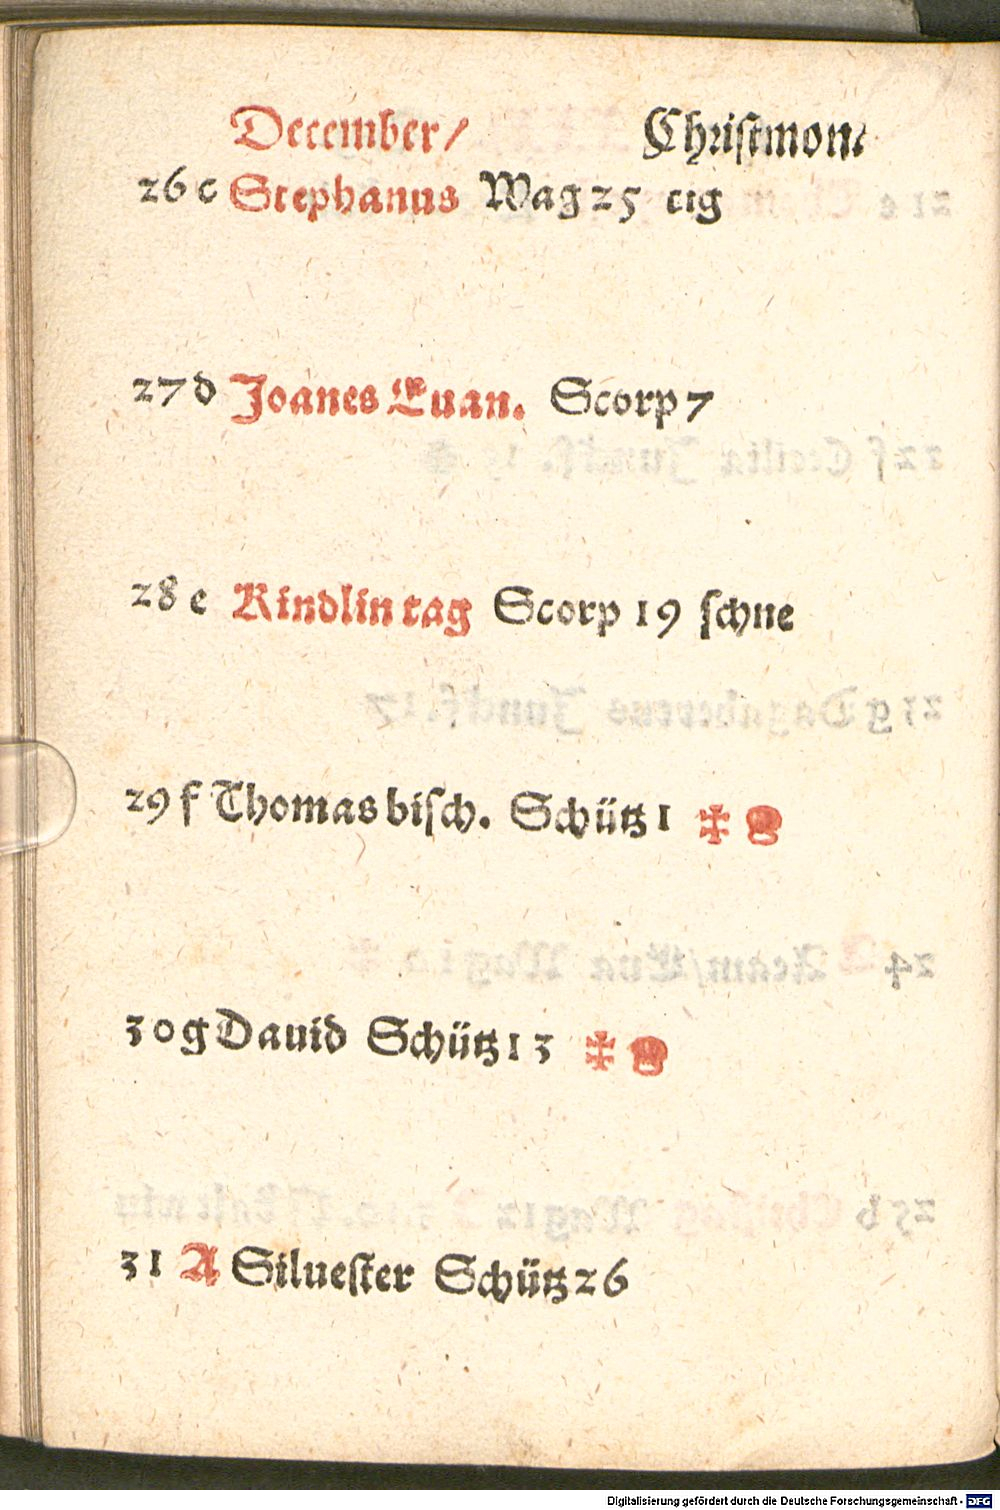 December/ Chriſtmon.
26 c Stephanus Wag 25 tig
27 d Joanes Euan. Scorp 7
28 e Kindlin tag Scorp 19 ſchne
29 f Thomas biſch. Schütz 1
30 g Dauid Schütz 13
31 A Silueſter Schütz 26
Digitalisierung gefördert durch die Deutsche Forschungsgemeinschaft - DFG